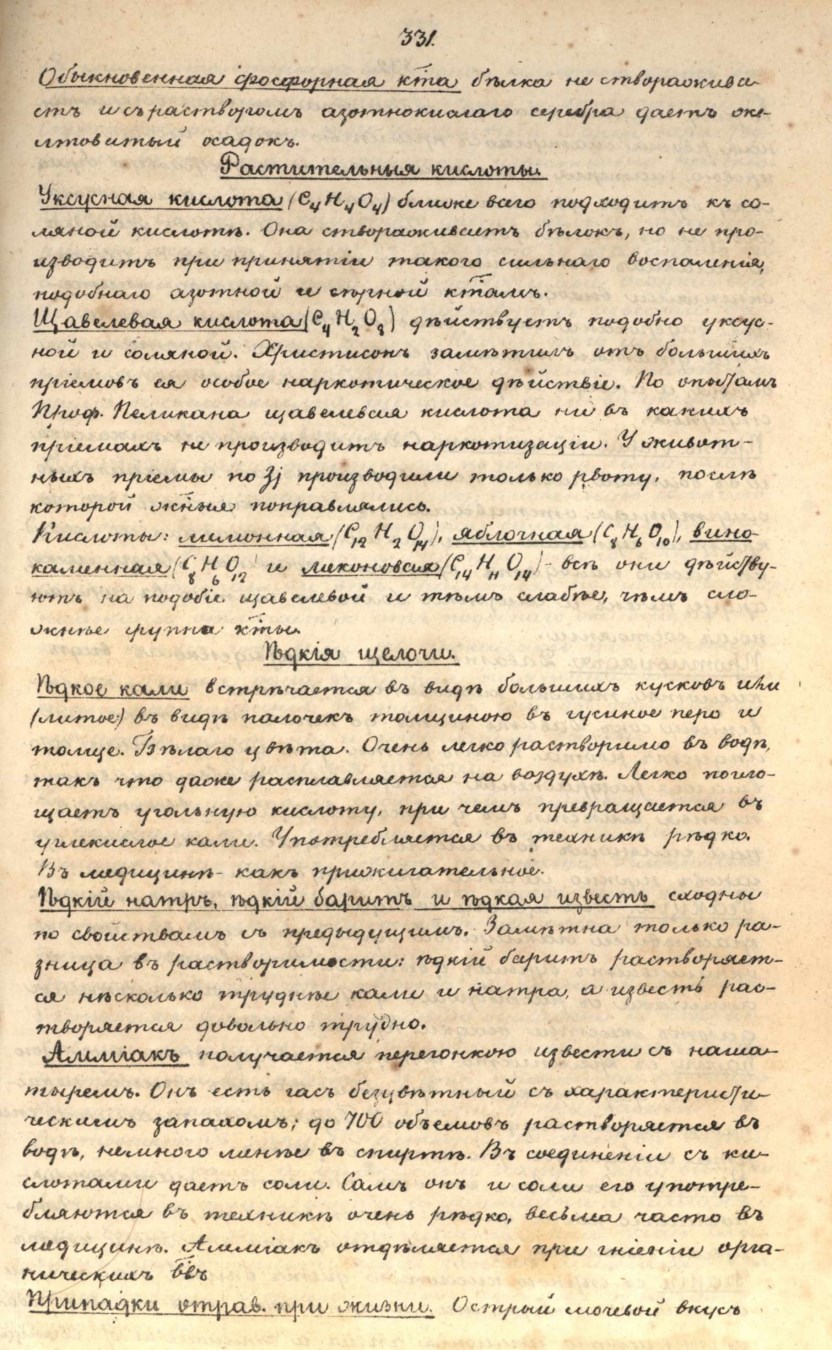 331.
Обыкновенная фосфорная кта бѣлка не створажива-
етъ и съ растворомъ азотнокислаго серебра даетъ же-
лтоватый осадокъ.
Растительныя кислоты.
Уксусная кислота (C4H4O4) ближе всего подходитъ къ со-
ляной кислотѣ. Она створаживаетъ бѣлокъ, но не про-
изводитъ при принятіи такого сильнаго воспаленія,
подобнаго азотной и сѣрной ктамъ.
Щавелевая кислота (C4H2O8) дѣйствуетъ подобно уксус-
ной и соляной. Христисонъ замѣтилъ отъ большихъ
пріемовъ ея особое наркотическое дѣйствіе. По опытамъ
Проф. Пеликана щавелевая кислота ни въ какихъ
пріемахъ не производитъ наркотизаціи. У живот-
ныхъ пріемы по ʒj производили только рвоту, послѣ
которой жныя поправлялись.
Кислоты: лимонная (C12H2O14), яблочная (C8H6O10), вино-
каменная (C8H6O12) и меконовая (C14H11O14) - всѣ они дѣйству-
ютъ на подобіе щавелевой и тѣмъ слабѣе, чѣмъ сло-
жнѣе группа кты.
Ѣдкія щелочи.
Ѣдкое кали встрѣчается въ видѣ большихъ кусковъ или
(литое) въ видѣ палочекъ толщиною въ гусиное перо и
толще. Бѣлаго цвѣта. Очень легко растворимо въ водѣ,
такъ что даже расплавляется на воздухѣ. Легко погло-
щаетъ угольную кислоту, при чемъ превращается въ
углекислое кали. Употребляется въ техникѣ рѣдко.
Въ медицинѣ - какъ прижигательное.
Ѣдкій натръ, ѣдкій баритъ и ѣдкая известь сходны
по свойствамъ съ предыдущимъ. Замѣтна только ра-
зница въ растворимости: ѣдкій баритъ растворяет-
ся нѣсколько труднѣе кали и натра, а известь рас-
творяется довольно трудно.
Амміакъ получается перегонкою извести съ наша-
тыремъ. Онъ есть газъ безцвѣтный съ характеристи-
ческимъ запахомъ; до 700 объемовъ растворяется въ
водѣ, немного менѣе въ спиртѣ. Въ соединеніи съ ки-
слотами даетъ соли. Самъ онъ и соли его употре-
бляются въ техникѣ очень рѣдко, весьма часто въ
медицинѣ. Амміакъ отдѣляется при гніеніи орга-
ническихъ вѣвъ
Припадки отрав. при жизни. Острый мочевой вкусъ